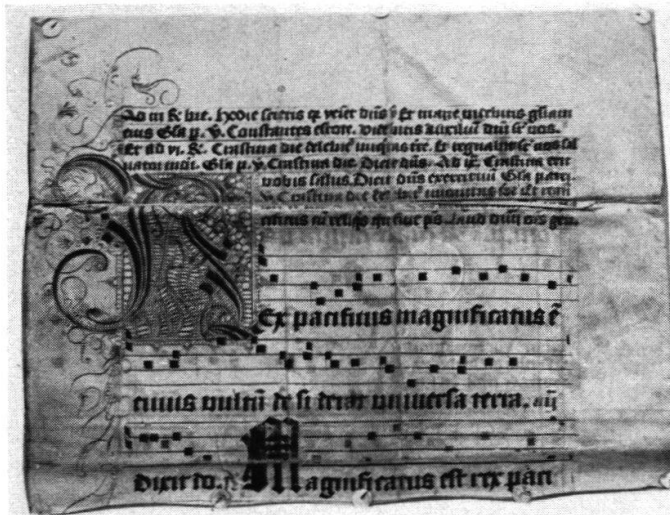 Ad iii R bre. Hodie scietis q̄ veiet dn̄s ⁊ Et mane videbitis gl̄iam
eius Gl̄a p. V. Constantes estote. videbitis auxiliū dn̄i
Et ad vi. R. Crastina die delebit̄ iniq̄tas tr̄e. Et regnabit sr̄ nos sal
uator mūdi. Gl̄a p. V. Crastina die. Dicit dn̄s. Ad Crastina erit
vobis salus. Dicit dn̄s exercituū Gl̄a patri.
V. Crastina die iniquitas
cificus ps. Laud dn̄m ōis gen.
REx pacificus magnificatus ē
cuius vultū de si derat vn iuersa terra. aīi
Dixit do. Magnificatus est rex paci